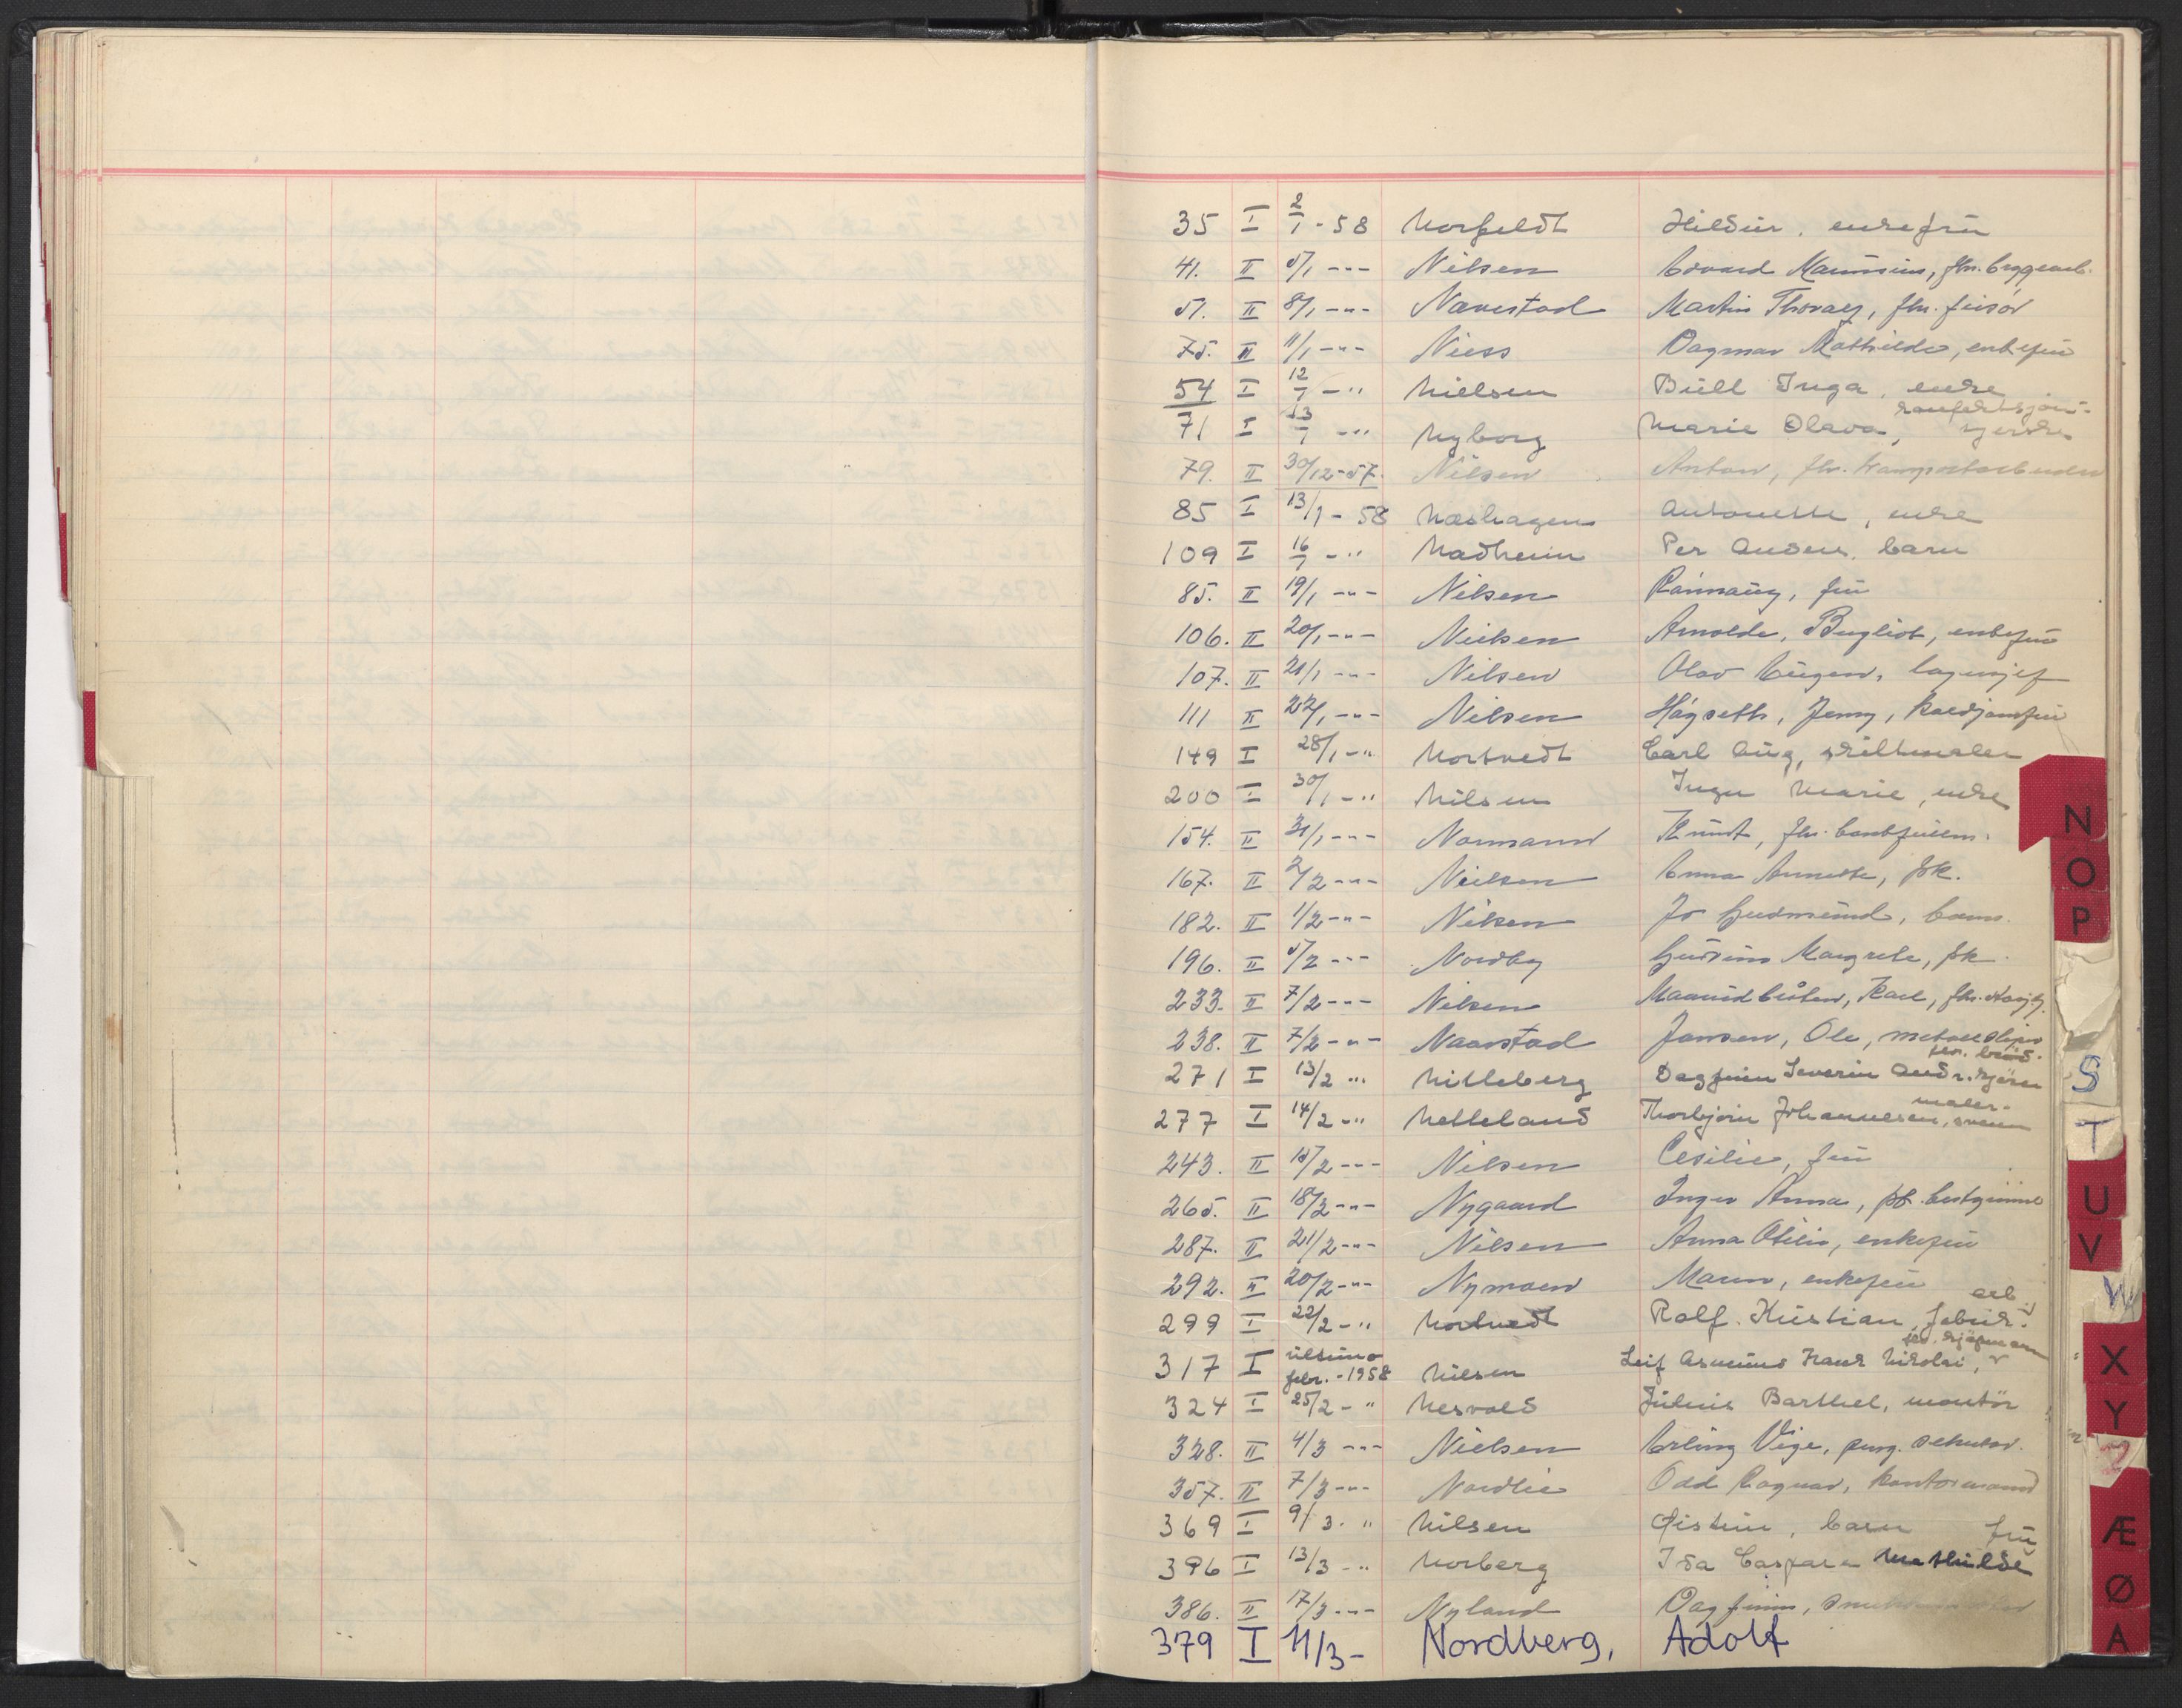 35 I 2/1 - 58 Norfeldt Hildur, enkefru
41. II 5/1 - " - Nilsen Edvard Maurinius, fhv. byggearb.
51. II 8/1 - " - Navestad Martin Thoralf, fhv. frisør
75. II 11/1 - " - Niess Dagmar Mathilde, enkefru
54 I 12/1 - " Nielsen Büll Inga, enke
71 I 13/1 - " Nyborg Marie Olava, konfeksjonsyerske
79. II 30/12-57. Nilsen Anton, fhv. transportarbeider
85 I 13/1 - 58 Næshagen Antonette, enke
109 I 16/1 - " Nadheim Per Anders, barn
85. II 19/1 - " - Nilsen Rannaug, fru
106. II 20/1 - " - Nielsen Arnolda, Bergliot, enkefru
107. II 21/1 - " - Nilsen Olav Eugen, lagersjef
111 II 22/1 - " - Nilsen Høgseth, Jenny,
149 I 28/1 - " Nortvedt Carl Aug, skiltmaler
200 I 30/1 - " Nilsen Inga Marie, enke
154. II 31/1 - " - Normann Knut, fhv.
167. II 2/2 - " - Nielsen Anna Annette, frk.
182. II 1/2 - " - Nilsen Jo Gudmund, barn.
196. II 5/2 - " - Nordby Gudrun Margrete, frk.
233. II 7/2 - " - Nilsen Karl, fhv.
238. II 7/2 - " - Naarstad Jansen, Ole, metallsliper
271 I 13/2 " Nilleberg Dagfinn Severin Andr. fhv. kjører
277 I 14/2 - " Nelleland Thorbjørn Johannesen, malersvenn
243. II 15/2 - " - Nilsen Cesilie, fru
265. II 18/2 - " - Nygaard Inger Anna, frk. bestyrerinne
287. II 21/2 - " - Nilsen Anna Otilie, enkefru
292. II 20/2 - " - Nymoen Maren, enkefru
299 I 22/2 - " Nortvedt Rolf Kristian, fabrik.arb
317 I ultimo febr. - 1958 Nilsen Leif Asmund Frank Nikolai, fhv. sjømann
324 I 25/2 - " Nesvold Julius Barthel, montør
328. II 4/3 - " - Nielsen Erling Vige, pens. sekretær.
357. II 7/3 - " - Nordlie Odd Ragnar, kontormann
369 I 9/3. " Nilsen Øistein, barn
396 I 13/3 - " Norberg Ida Caspara Mathilde fru
386. II 17/3 - " - Nyland Dagfinn,
379 I 11/3 - Nordberg, Adolf
N
O
P
S
T
U
V
W
X
Y
Z
Æ
Ø
A